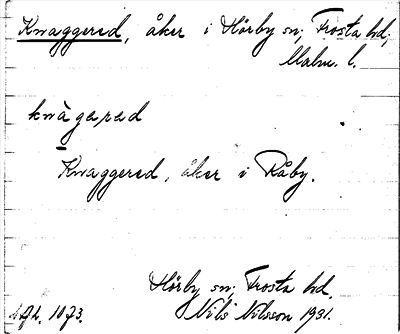 Knaggered, åker i Hörby sn, Frosta hd,
Malm. l.
Knaggered, åker i Råby.
Hörby sn, Frosta hd.
Nils Nilsson 1931.